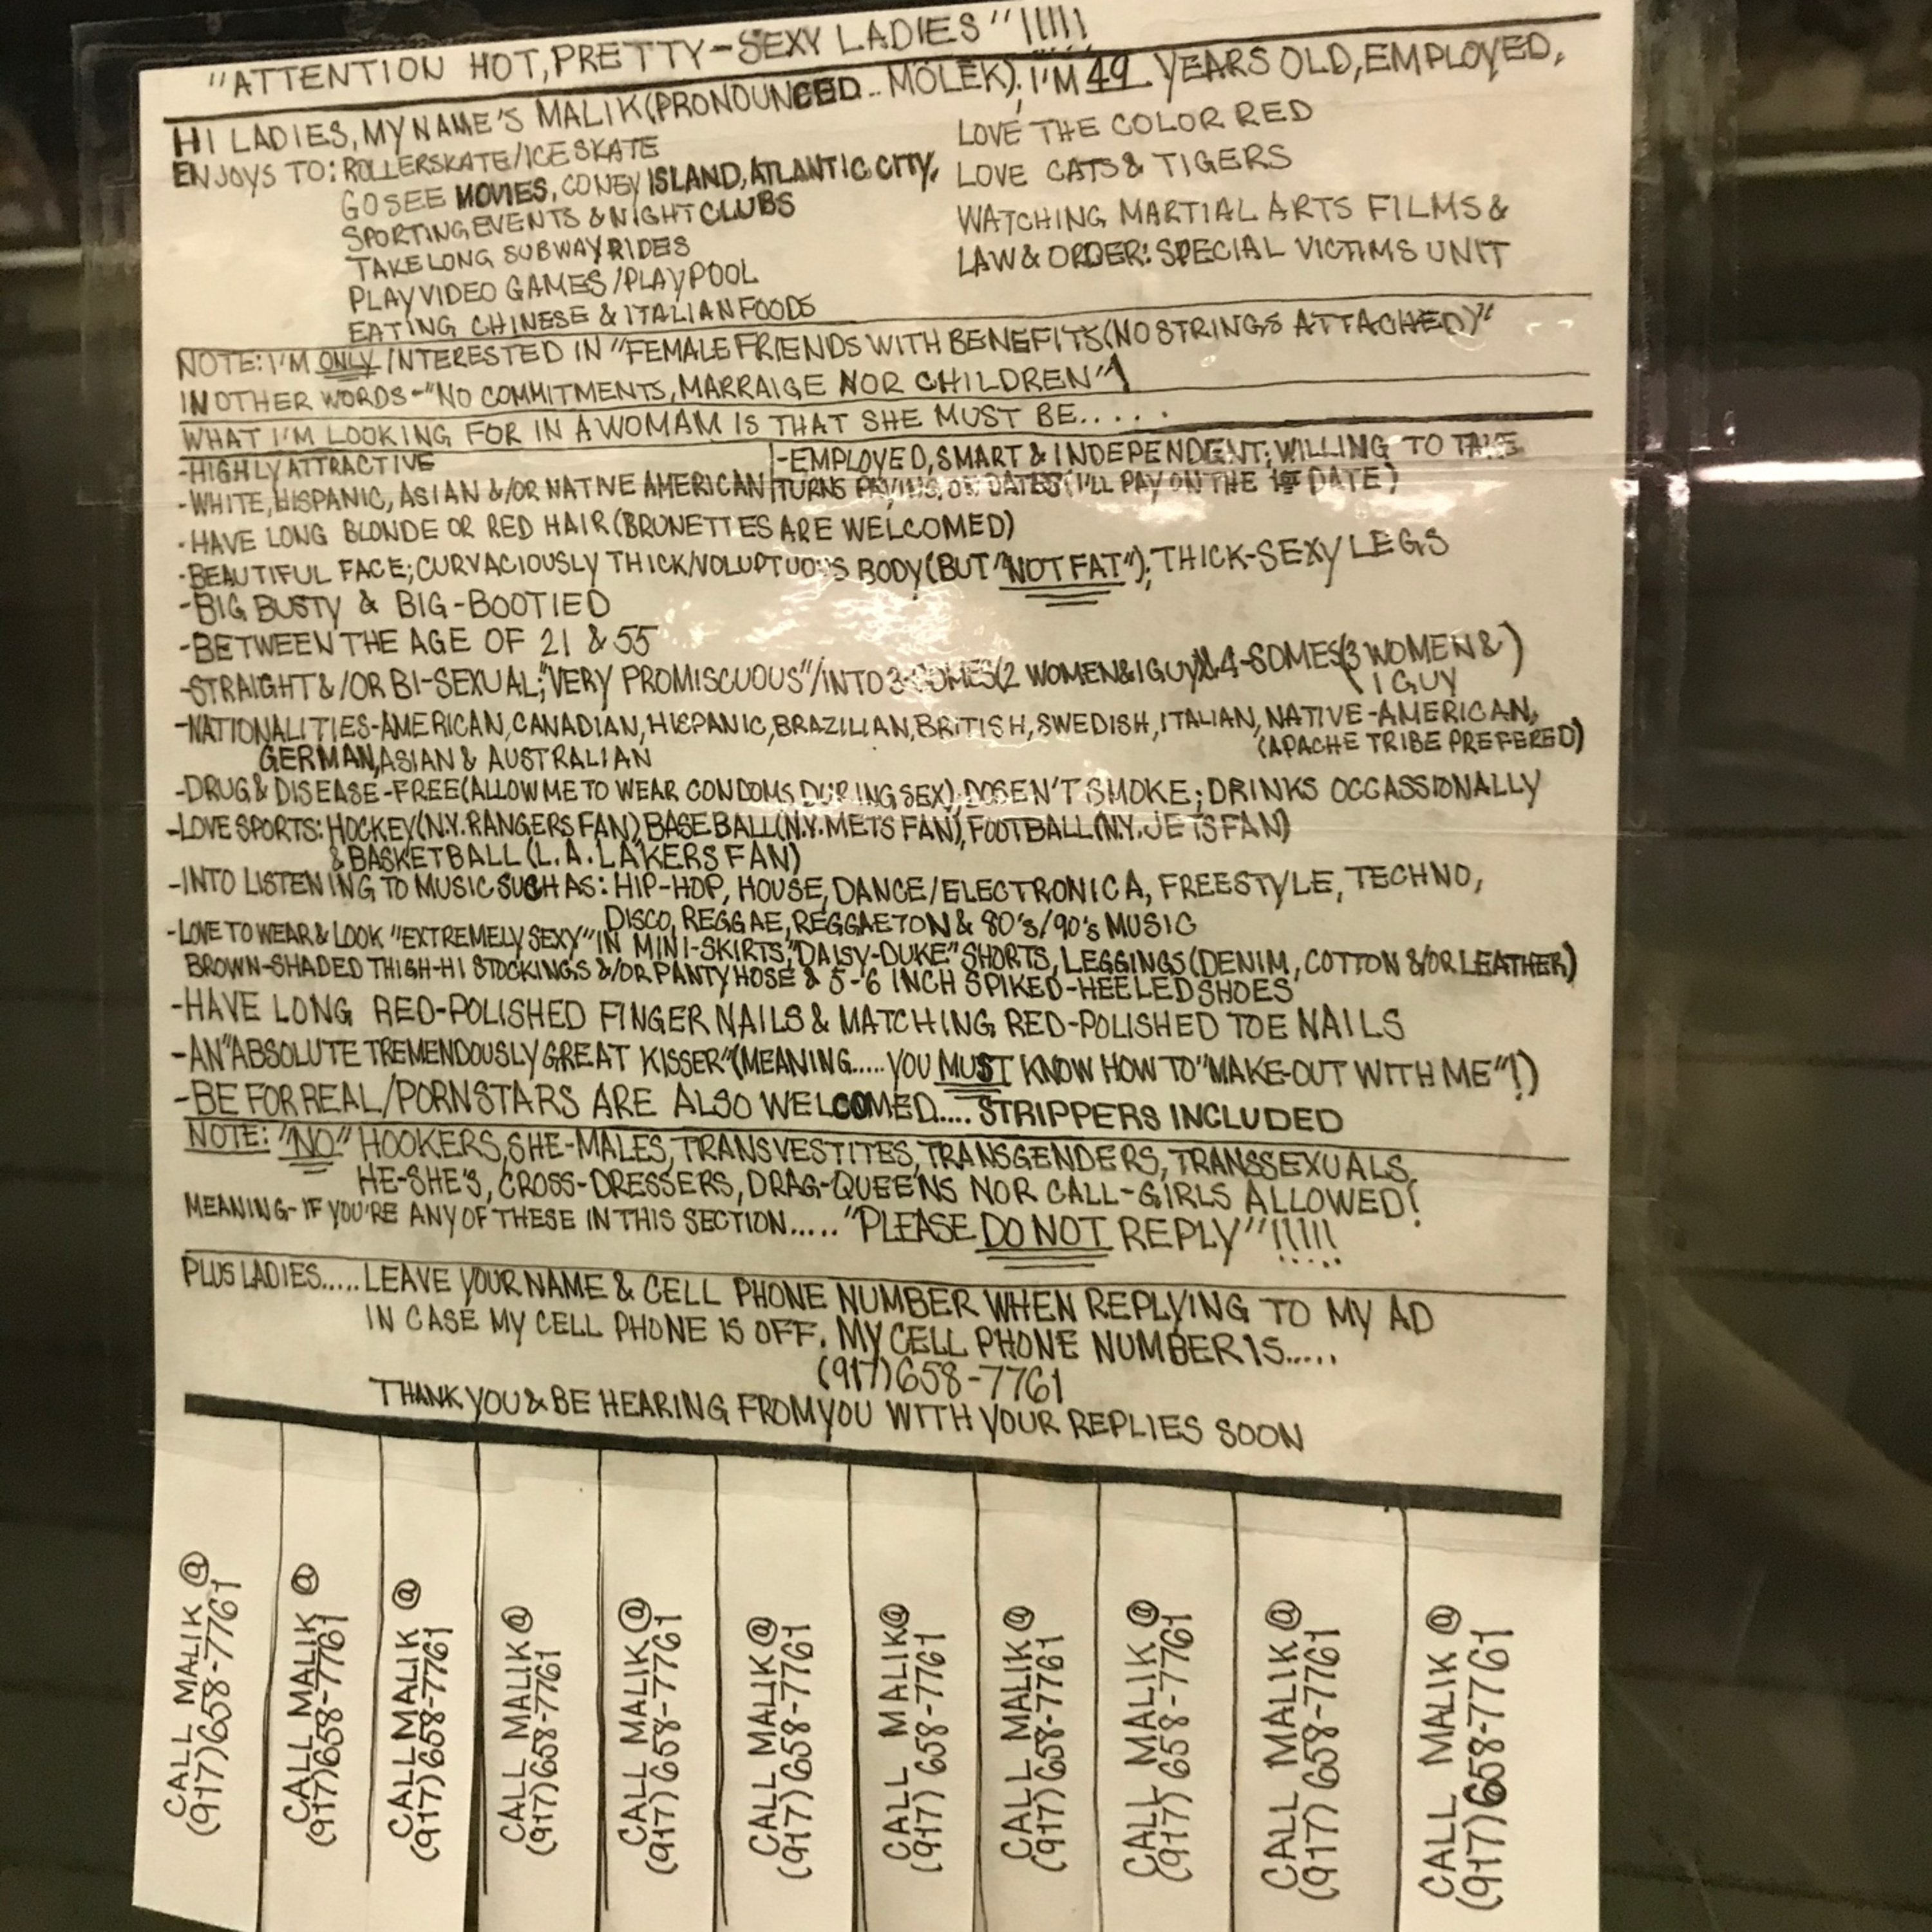 "ATTENTION HOT, PRETTY-SEXY LADIES"!!!!!
HI LADIES, MY NAME'S MALIK (PRONOUNCED.. MOLEK); I'M 49 YEARS OLD, EMPLOYED,
ENJOYS TO: ROLLERSKATE/ICE SKATE
GO SEE MOVIES, CONEY ISLAND, ATLANTIC CITY,
SPORTING EVENTS & NIGHT CLUBS
TAKE LONG SUBWAY RIDES
PLAY VIDEO GAMES/PLAY POOL
EATING CHINESE & ITALIAN FOODS
LOVE THE COLOR RED
LOVE CATS & TIGERS
WATCHING MARTIAL ARTS FILMS &
LAW & ORDER: SPECIAL VICTIMS UNIT
NOTE: I'M ONLY INTERESTED IN "FEMALE FRIENDS WITH BENEFITS (NO STRINGS ATTACHED)"
IN OTHER WORDS-"NO COMMITMENTS, MARRAIGE NOR CHILDREN"!
WHAT I'M LOOKING FOR IN A WOMAM IS THAT SHE MUST BE.....
-HIGHLY ATTRACTIVE
-WHITE, HISPANIC, ASIAN &/OR NATIVE AMERICAN
-EMPLOYED, SMART & INDEPENDENT; WILLING TO TAKE
TURNS PAYING ON DATES (I'LL PAY ON THE 1ST DATE)
-HAVE LONG BLONDE OR RED HAIR (BRUNETTES ARE WELCOMED)
-BEAUTIFUL FACE; CURVACIOUSLY THICK/VOLUPTUOUS BODY (BUT "NOT FAT"); THICK-SEXY LEGS
-BIG BUSTY & BIG-BOOTIED
-BETWEEN THE AGE OF 21 & 55
-STRAIGHT &/OR BI-SEXUAL; "VERY PROMISCUOUS"/INTO 3-SOMES (2 WOMEN & 1 GUY) & 4-SOMES (3 WOMEN &
1 GUY)
-NATIONALITIES-AMERICAN, CANADIAN, HISPANIC, BRAZILIAN, BRITISH, SWEDISH, ITALIAN, NATIVE-AMERICAN,
(APACHE TRIBE PREFERED)
GERMAN, ASIAN & AUSTRALIAN
-DRUG & DISEASE-FREE (ALLOW ME TO WEAR CONDOMS DURING SEX); DOSEN'T SMOKE; DRINKS OCCASSIONALLY
-LOVE SPORTS: HOCKEY (N.Y. RANGERS FAN), BASEBALL (N.Y. METS FAN), FOOTBALL (N.Y. JETS FAN)
& BASKETBALL (L.A. LAKERS FAN)
-INTO LISTENING TO MUSIC SUCH AS: HIP-HOP, HOUSE, DANCE/ELECTRONICA, FREESTYLE, TECHNO,
DISCO, REGGAE, REGGAETON & 80's/90's MUSIC
-LOVE TO WEAR & LOOK "EXTREMELY SEXY" IN MINI-SKIRTS, "DAISY-DUKE" SHORTS, LEGGINGS (DENIM, COTTON &/OR LEATHER)
BROWN-SHADED THIGH-HI STOCKINGS &/OR PANTYHOSE & 5-6 INCH SPIKED-HEELED SHOES
-HAVE LONG RED-POLISHED FINGER NAILS & MATCHING RED-POLISHED TOE NAILS
-AN "ABSOLUTE TREMENDOUSLY GREAT KISSER" (MEANING.....YOU MUST KNOW HOW TO "MAKE-OUT WITH ME"!)
-BE FOR REAL/PORNSTARS ARE ALSO WELCOMED.... STRIPPERS INCLUDED
NOTE: "NO" HOOKERS, SHE-MALES, TRANSVESTITES, TRANSGENDERS, TRANSSEXUALS,
HE-SHE'S, CROSS-DRESSERS, DRAG-QUEENS NOR CALL-GIRLS ALLOWED!
MEANING-IF YOU'RE ANY OF THESE IN THIS SECTION....."PLEASE DO NOT REPLY"!!!!!
PLUS LADIES.....LEAVE YOUR NAME & CELL PHONE NUMBER WHEN REPLYING TO MY AD
IN CASE MY CELL PHONE IS OFF. MY CELL PHONE NUMBER IS.....
(917)658-7761
THANK YOU & BE HEARING FROM YOU WITH YOUR REPLIES SOON
CALL MALIK @
(917)658-7761
CALL MALIK @
(917)658-7761
CALL MALIK @
(917)658-7761
CALL MALIK @
(917)658-7761
CALL MALIK @
(917)658-7761
CALL MALIK @
(917)658-7761
CALL MALIK @
(917)658-7761
CALL MALIK @
(917)658-7761
CALL MALIK @
(917)658-7761
CALL MALIK @
(917)658-7761
CALL MALIK @
(917)658-7761